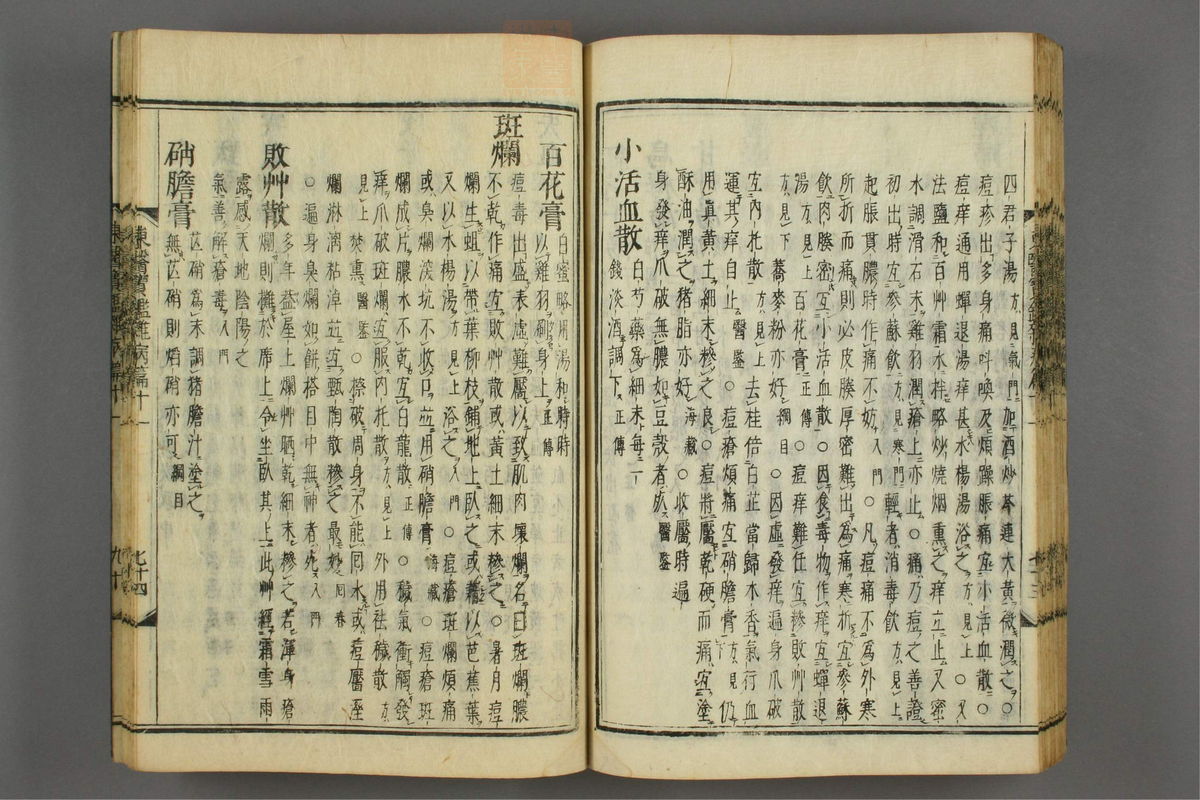 四君子湯方見氣門加酒炒芩連大黃微潤之○
痘疹出多身痛叫喚及煩躁脹痛宜小活血散○
痘痒通用蟬退湯痒甚水楊湯浴之方見上○又
法鹽和百艸霜水拌略炒燒烟熏之痒立止又蜜
水調滑石末以雞羽潤瘡上亦止○痛乃痘之善證
初出時宜參蘇飲方見寒門輕者消毒飲方見上
起脹貫膿時作痛不妨入門○凡痘痛不爲外寒
所折而痛則必皮膚厚密難出爲痛寒折宜參蘇
飲肉膚密宜小活血散○因食毒物作痒宜蟬退
湯方見上百花膏正傳○痘痒難任宜糝敗艸散
方見下蕎麥粉亦好綱目○因虛發痒遍身爪破
宜內托散方見上去桂倍白芷當歸木香氣行血
運其痒自止醫鑒○痘瘡煩痛宜硝膽膏方見下仍
用眞黃土細末糝之良○痘將靨乾硬而痛宜塗
酥油潤之猪脂亦好海藏○收靨時遍
身發痒爪破無膿如豆殼者佽醫鑒
小活血散白芍藥爲細末每一
錢淡酒調下正傳
百花膏白蜜略用湯和時時
以雞羽刷身上正傳
斑爛痘毒出盛表虛難靨以致肌肉壞爛名曰斑爛膿
不乾作痛宜敗艸散或黃土細末糝之○暑月痘
爛生蛆以帶葉柳枝鋪地上臥之或鋪以芭蕉葉
又以水楊湯方見上浴之入門○痘瘡斑爛煩痛
或臭爛深坑不收口並用硝膽膏海藏○痘瘡斑
爛成片膿水不乾宜白龍散正傳○穢氣衝觸發
痒爪破斑爛宜服內托散方見上外用祛穢散方
見上焚熏醫鑒○㯽破周身不能回水或痘靨至
爛淋漓粘淖並宜甄陶散糝之最妙回春
○遍身臭爛如餠搭目中無神者死入門
敗艸散多年益屋上爛艸晒乾細末糝之若渾身瘡
爛則攤於席上令坐臥其上此艸經霜雪雨
露感天地陰陽之
氣善解瘡毒入門
硝膽膏芒硝爲末調猪膽汁塗之
無芒硝則焰硝亦可綱目
東醫寶鑑雜病篇十一
七十四